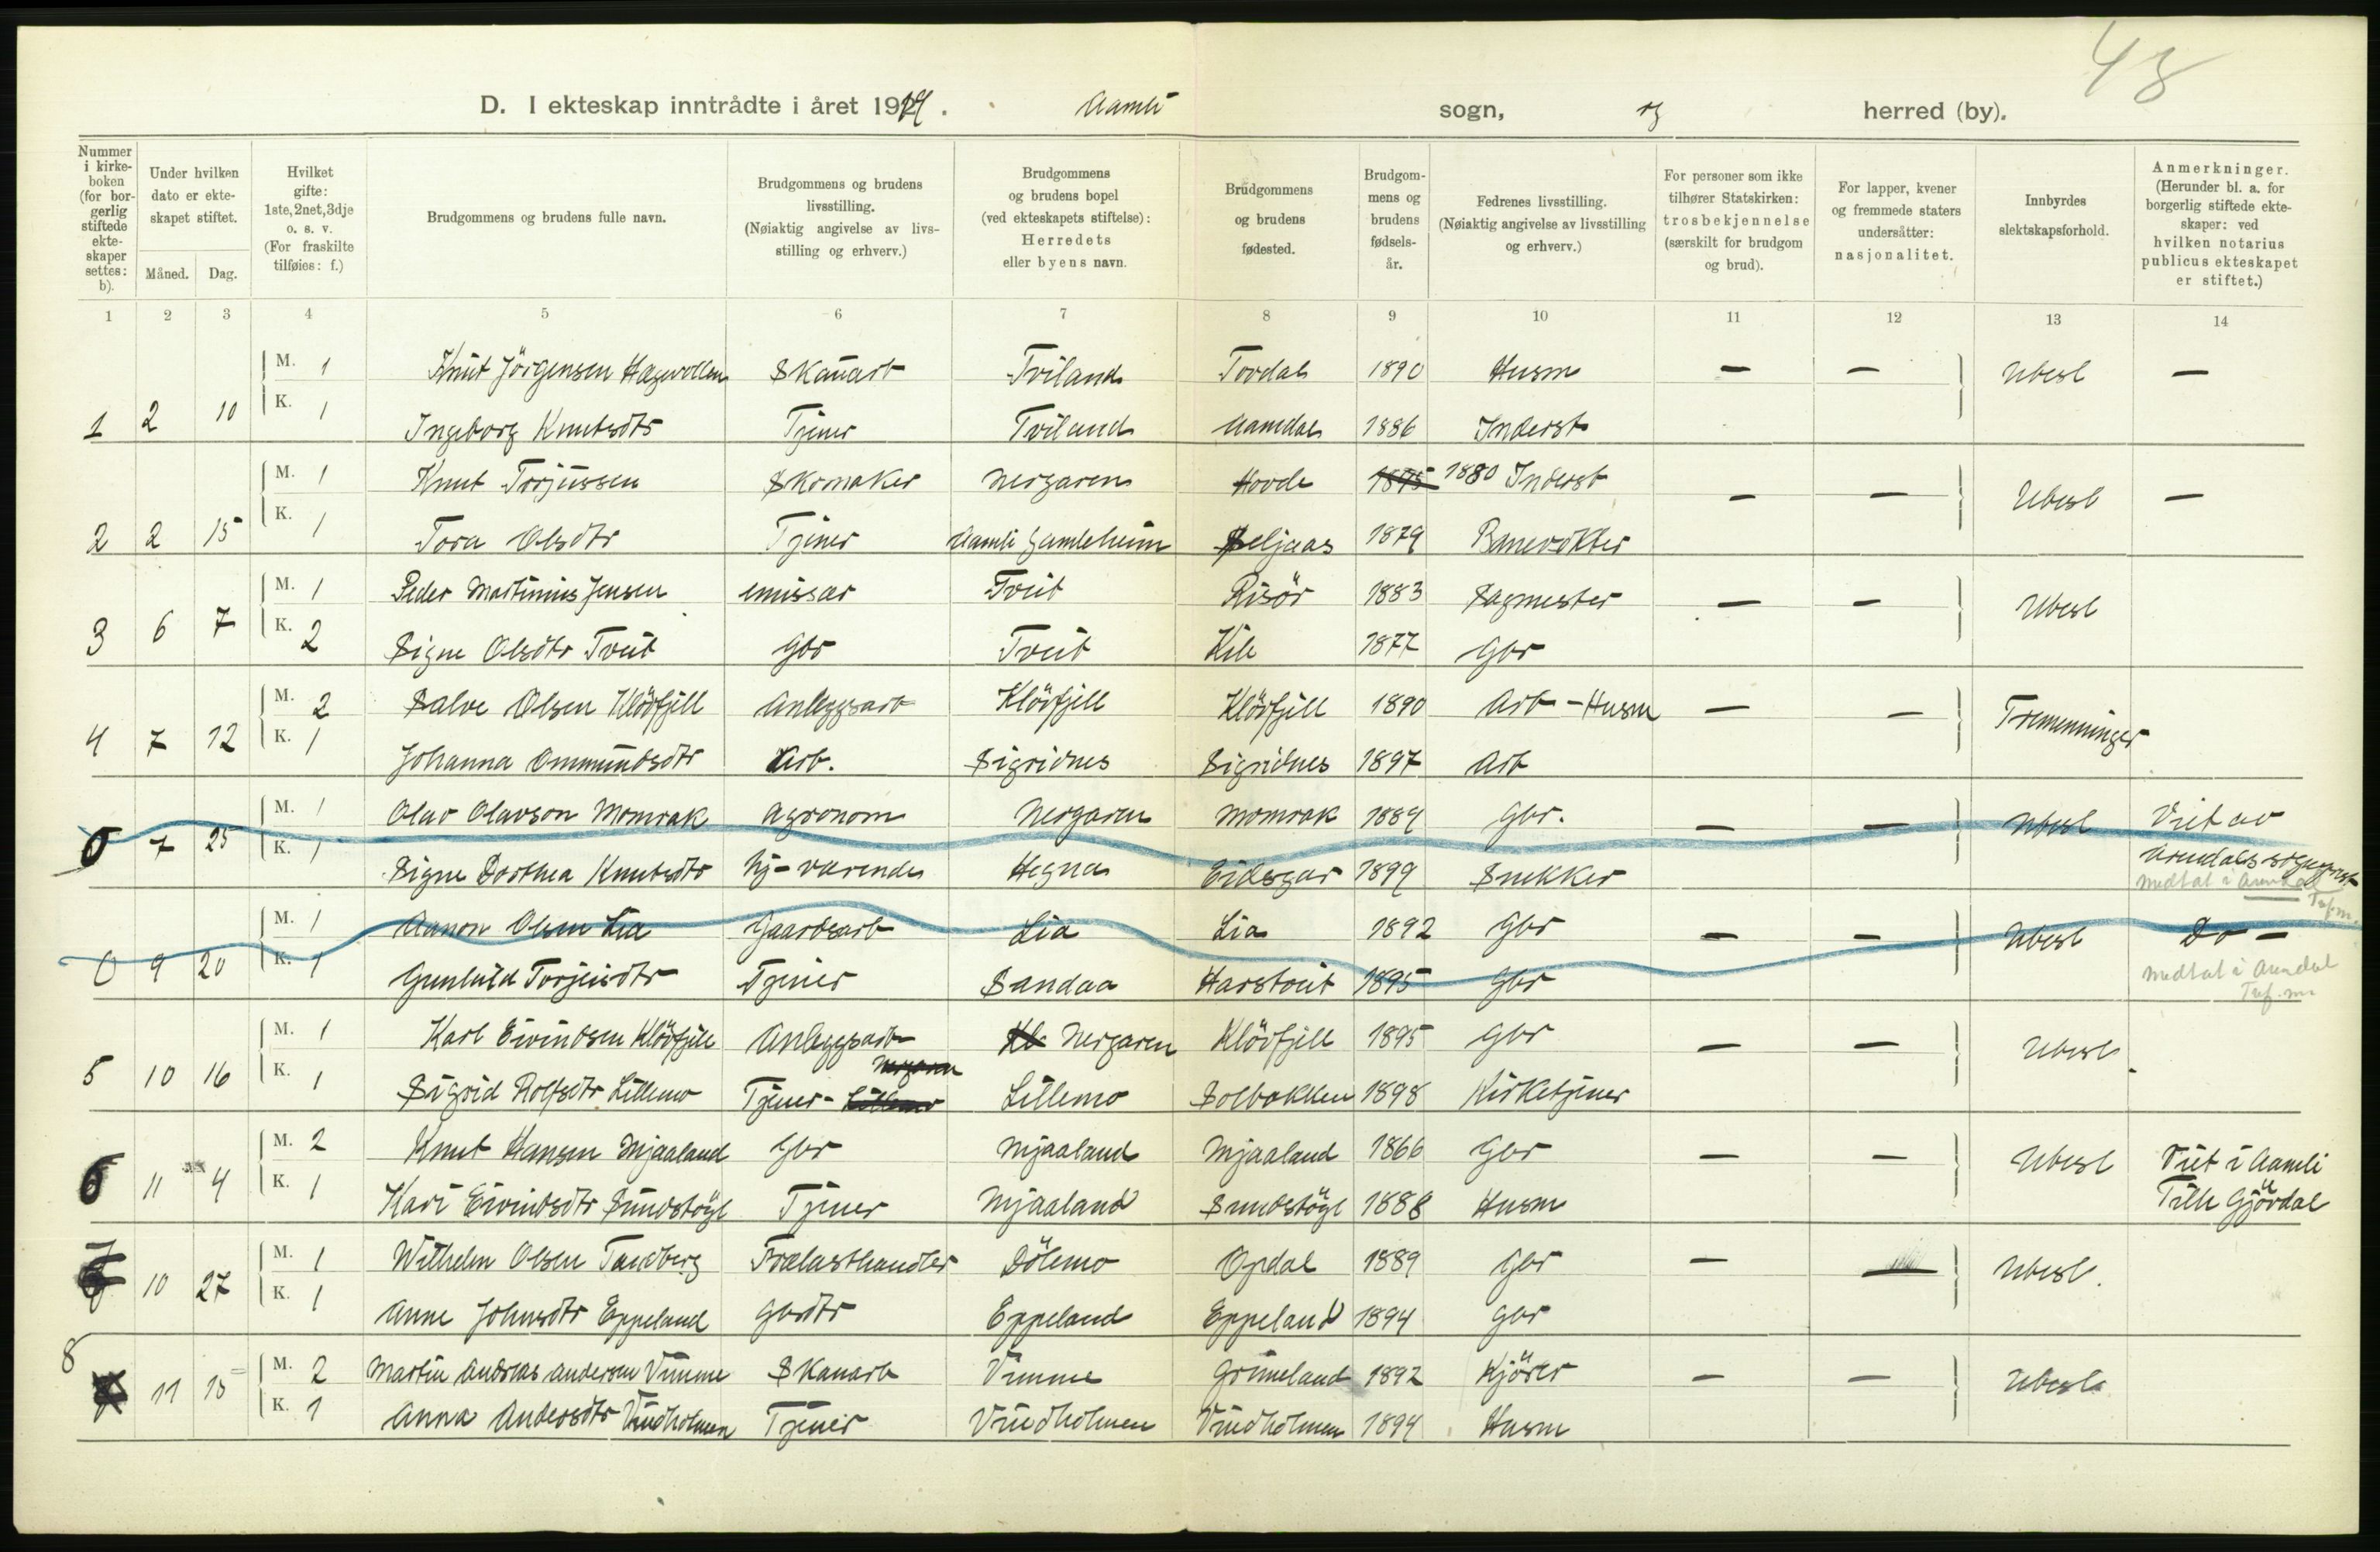 43
D. I ekteskap inntrådte i året 19 . Aamli sogn, herred (by).
Nummer i kirkeboken (for borgerlig stiftede ekteskaper settes: b).
Under hvilken dato er ekteskapet stiftet.
Måned. Dag.
Hvilket gifte: 1ste, 2net, 3dje o. s. v. (For fraskilte tilføies: f.)
Brudgommens og brudens fulle navn.
Brudgommens og brudens livsstilling. (Nøiaktig angivelse av livsstilling og erhverv.)
Brudgommens og brudens bopel (ved ekteskapets stiftelse): Herredets eller byens navn.
Brudgommens og brudens fødested.
Brudgommens og brudens fødselsår.
Fedrenes livsstilling. (Nøiaktig angivelse av livsstilling og erhverv.)
For personer som ikke tilhører Statskirken: trosbekjennelse (særskilt for brudgom og brud).
For lapper, kvener og fremmede staters undersåtter: nasjonalitet.
Innbyrdes slektskapsforhold.
Anmerkninger. (Herunder bl. a. for borgerlig stiftede ekteskaper: ved hvilken notarius publicus ekteskapet er stiftet.)
1 2 3 4 5 6 7 8 9 10 11 12 13 14
M. 1 Knut Jörgensen Hagevollen Skauarb Tviland Tovdal 1890 Husm — — Ubesl —
1 2 10 K. 1 Ingeborg Knutsdtr Tjener Tviland Aamdal 1886 Inderst
M. 1 Knut Torjussen Skomaker Nergaren Hovde 1875 1880 Inderst — — Ubesl —
2 2 15 K. 1 Tora Olsdtr Tjener Aamli Gamleheim Seljaas 1879 Banevokter
M. 1 Peder Martinius Jensen emissær Tveit Risör 1883 Sagmester — — Ubesl
3 6 7 K. 2 Signe Olsdtr Tveit Gbr Tveit Kile 1877 Gbr
M. 2 Salve Olsen Klövfjell Anleggsarb Klövfjell Klövfjell 1890 Arb - Husm — — Tremenninger
4 7 12 K. 1 Johanna Ommundsdtr Arb. Sigridnes Sigridnes 1897 Arb
M. 1 Olav Olavson Momrak Agronom Nergaren Momrak 1889 Gbr. — — Ubesl Viet av
0 7 25 K. 1 Signe Dorthea Knutsdtr hj-værende Hegna Eidsgar 1899 Snekker Arendals sogneprest
medtat i Arendal
M. 1 Aanon Olsen Lia Gaardsarb Lia Lia 1892 Gbr — — Ubesl Do —
0 9 20 K. 1 Gunhild Torjeisdtr Tjener Sandaa Harstveit 1895 Gbr medtat i Arendal
M. 1 Karl Eivindsen Klövfjell Anleggsarb Kl Nergaren Klövfjell 1895 Gbr — — Ubesl
Nergaren
5 10 16 K. 1 Sigrid Rolfsdtr Lillemo Tjener - Lillemo Lillemo Solbakken 1898 Kirketjener
M. 2 Knut Hansen Mjaaland Gbr Mjaaland Mjaaland 1866 Gbr — — Ubesl Viet i Aamli
6 11 4 K. 1 Kari Eivindsdtr Sundstöyl Tjener Mjaaland Sundstöyl 1888 Husm Tilh Gjövdal
M. 1 Wilhelm Olsen Tandberg Trælasthandler Dölemo Opdal 1889 Gbr — — Ubesl.
7 10 27 K. 1 Anne Johnsdtr Eppeland Gbrdtr Eppeland Eppeland 1894 Gbr
M. 2 Martin Andreas Andersen Vimme Skauarb Vimme Grimeland 1892 Kjörer — — Ubesl
8 11 15 K. 1 Anna Andersdtr Vindholmen Tjener Vindholmen Vindholmen 1894 Husm